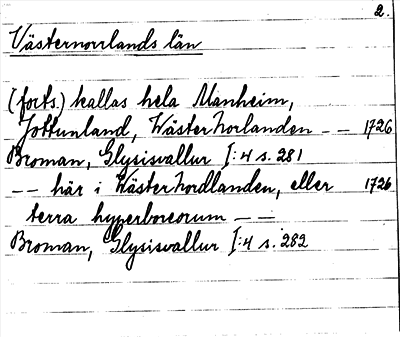 2.
Västernorrlands län
(forts.) kallas hela Manheim,
Jottunland, Wäster Norlanden – – 1726
Broman, Glysisvallur I:4 s. 281
– – här i Wäster Nordlanden, eller 1726
terra hyperboreorum – –
Broman, Glysisvallur I:4 s. 282